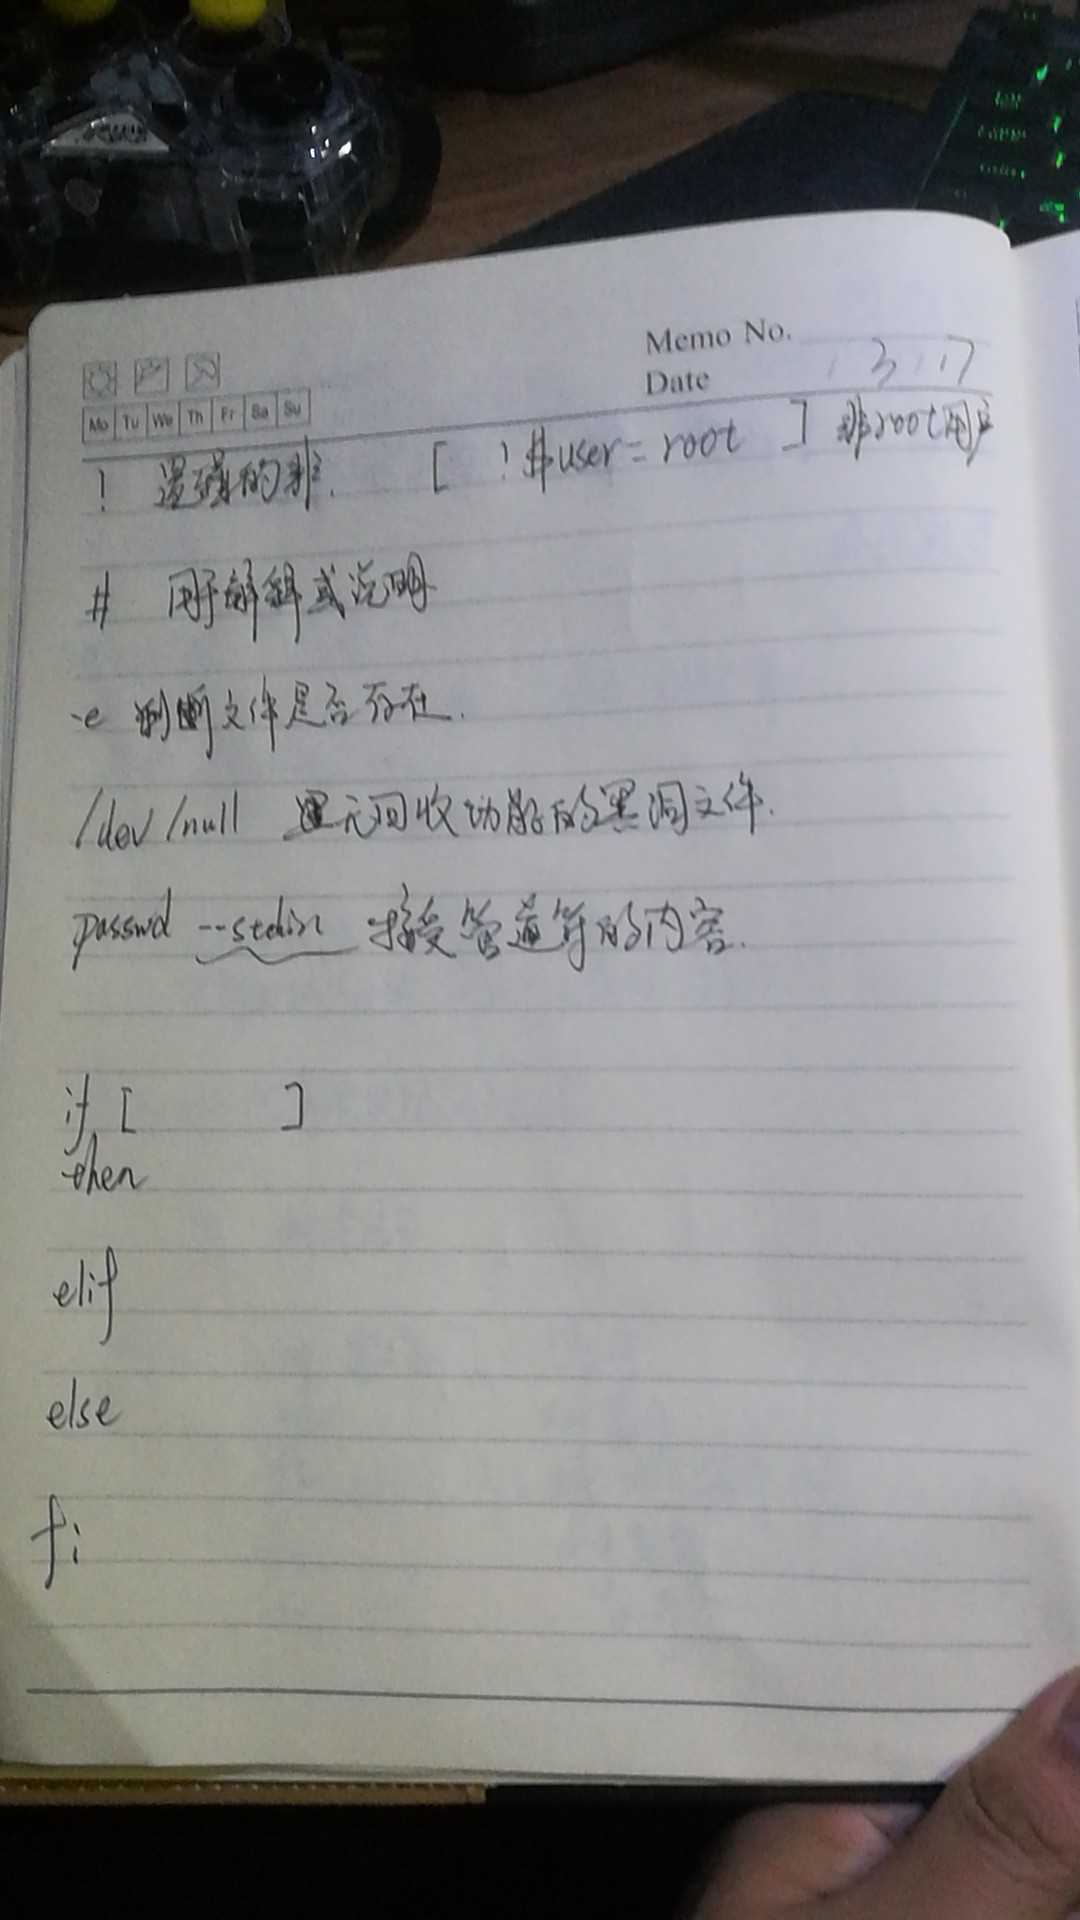 Memo No.
Date 3 17
Mo Tu We Th Fr Sa Su
! 逻辑的非. [ ! $user = root ] 非root用户
# 用于解释或说明
-e 判断文件是否存在.
/dev/null 是无回收功能的黑洞文件.
passwd --stdin 接受管道符的内容.
if [ ]
then
elif
else
fi